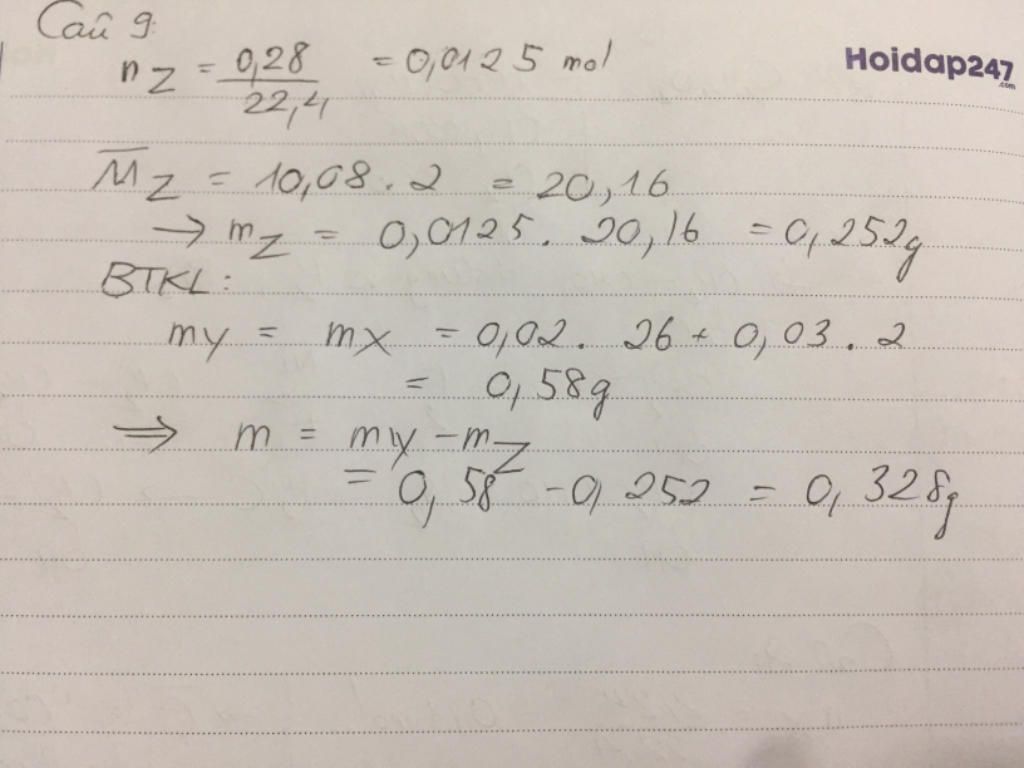 Câu 9:
n_Z = 0,28 / 22,4 = 0,0125 mol
Hoidap247
.com
M̅_Z = 10,08 . 2 = 20,16
→ m_Z = 0,0125 . 20,16 = 0,252g
BTKL:
my = mx = 0,02 . 26 + 0,03 . 2
= 0,58g
⇒ m = my - m_Z
= 0,58 - 0,252 = 0,328g